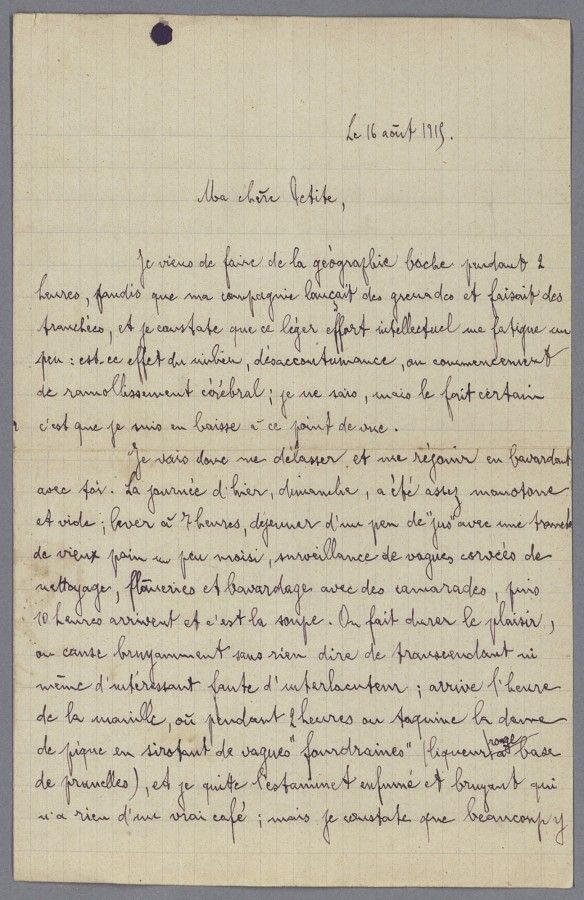 Le 16 août 1915.
Ma chère Petite,
Je viens de faire de la géographie boche pendant 2
heures, tandis que ma compagnie lançait des grenades et faisait des
tranchées, et je constate que ce léger effort intellectuel me fatigue un
peu : est-ce effet du milieu, désaccoutumance, ou commencement
de ramollissement cérébral ; je ne sais, mais le fait certain
c'est que je suis en baisse à ce point de vue.
Je vais donc me délasser et me réjouir en bavardant
avec toi. La journée d'hier, dimanche, a été assez monotone
et vide ; lever à 7 heures, déjeuner d'un peu de "jus" avec une tranche
de vieux pain un peu moisi, surveillance de vagues corvées de
nettoyage, flâneries et bavardage avec des camarades, puis
10 heures arrivent et c'est la soupe. On fait durer le plaisir,
on cause bruyamment sans rien dire de transcendant ni
même d'intéressant faute d'interlocuteur ; arrive l'heure
de la manille, où pendant 2 heures on taquine la dame
de pique en sirotant de vagues "fourdraines" (liqueur rouge à base
de prunelles), et je quitte l'estaminet enfumé et bruyant qui
n'a rien d'un vrai café ; mais je constate que beaucoup y